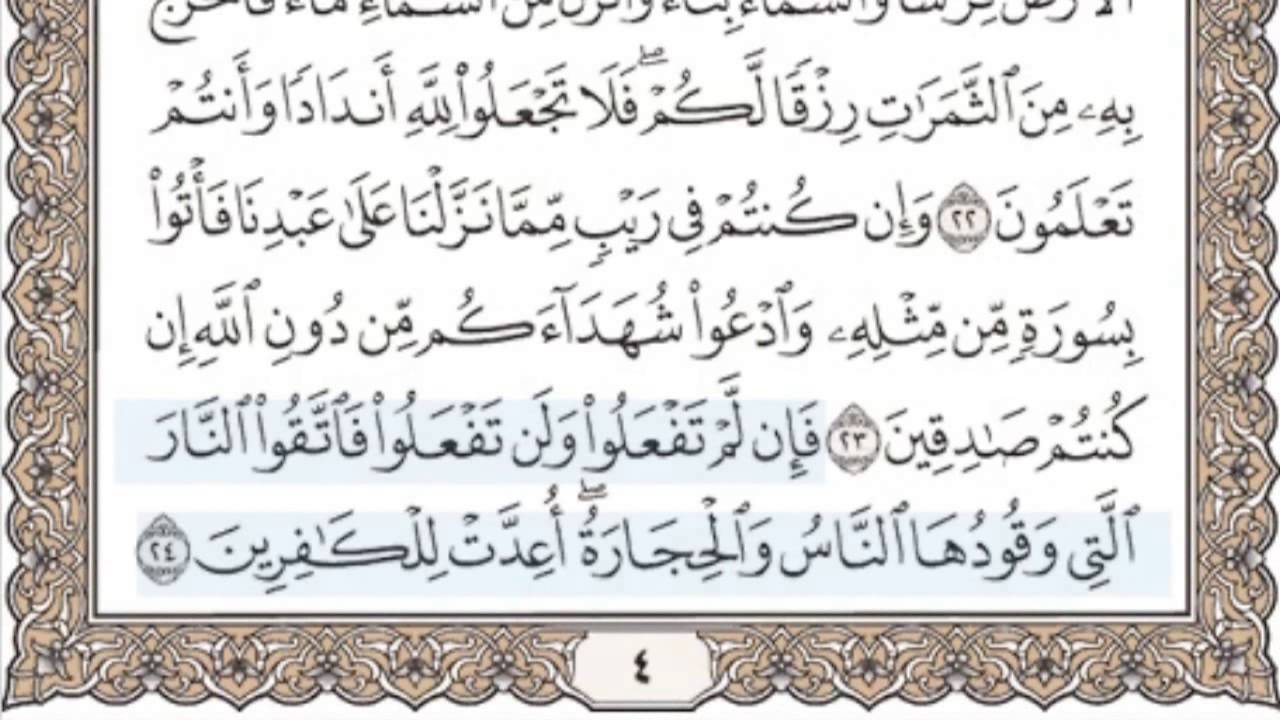 الْأَرْضَ فِرَٰشًا وَالسَّمَاءَ بِنَاءً وَأَنزَلَ مِنَ السَّمَاءِ مَاءً فَأَخْرَجَ
بِهِۦ مِنَ ٱلثَّمَرَٰتِ رِزْقًا لَّكُمْ ۖ فَلَا تَجْعَلُوا۟ لِلَّهِ أَندَادًا وَأَنتُمْ
تَعْلَمُونَ ٢٢ وَإِن كُنتُمْ فِى رَيْبٍ مِّمَّا نَزَّلْنَا عَلَىٰ عَبْدِنَا فَأْتُوا۟
بِسُورَةٍ مِّن مِّثْلِهِۦ وَٱدْعُوا۟ شُهَدَآءَكُم مِّن دُونِ ٱللَّهِ إِن
كُنتُمْ صَٰدِقِينَ ٢٣ فَإِن لَّمْ تَفْعَلُوا۟ وَلَن تَفْعَلُوا۟ فَٱتَّقُوا۟ ٱلنَّارَ
ٱلَّتِى وَقُودُهَا ٱلنَّاسُ وَٱلْحِجَارَةُ ۖ أُعِدَّتْ لِلْكَٰفِرِينَ ٢٤
٤